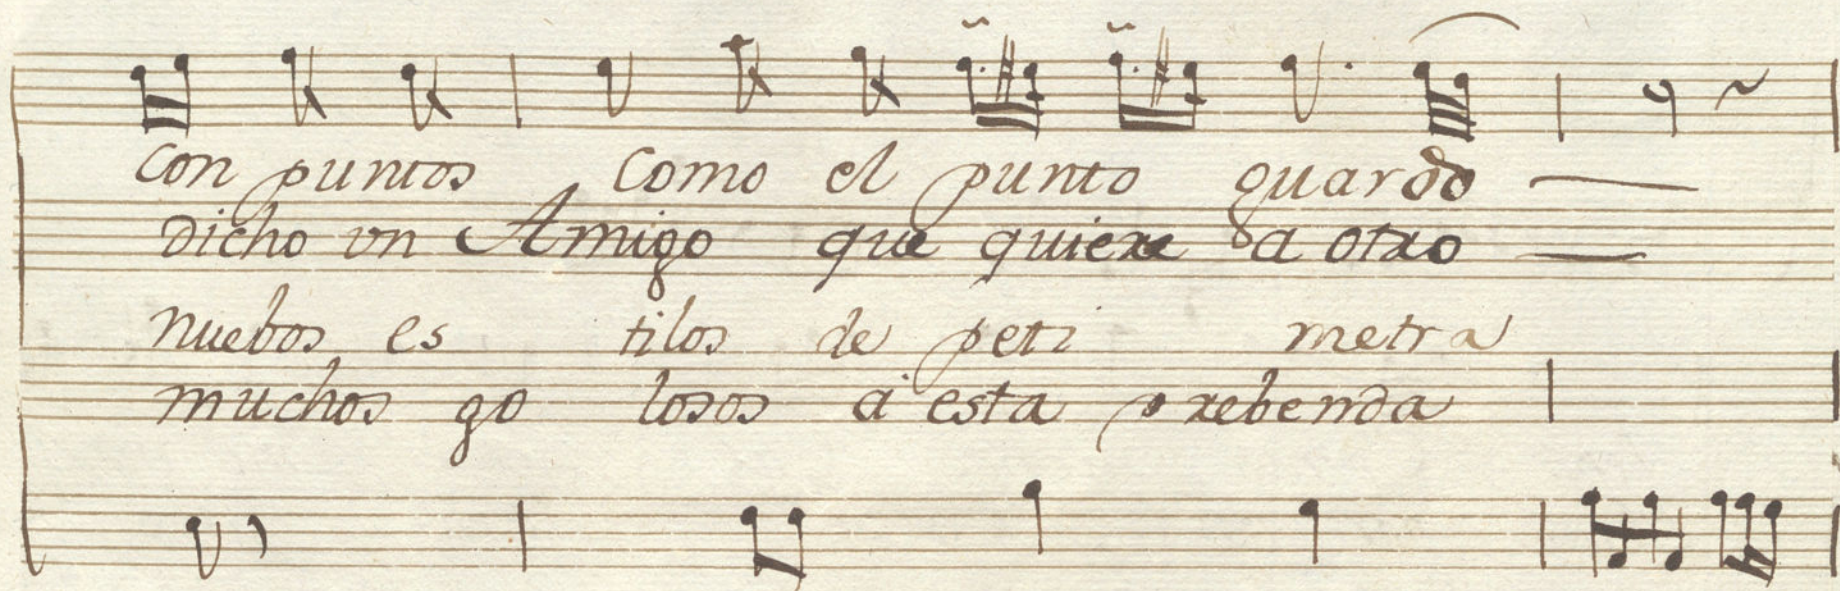 con puntos Como el punto guardo
dicho vn Amigo que quiere a otro
nuebos es tilos de peti metra
muchos go losos á esta prebenda